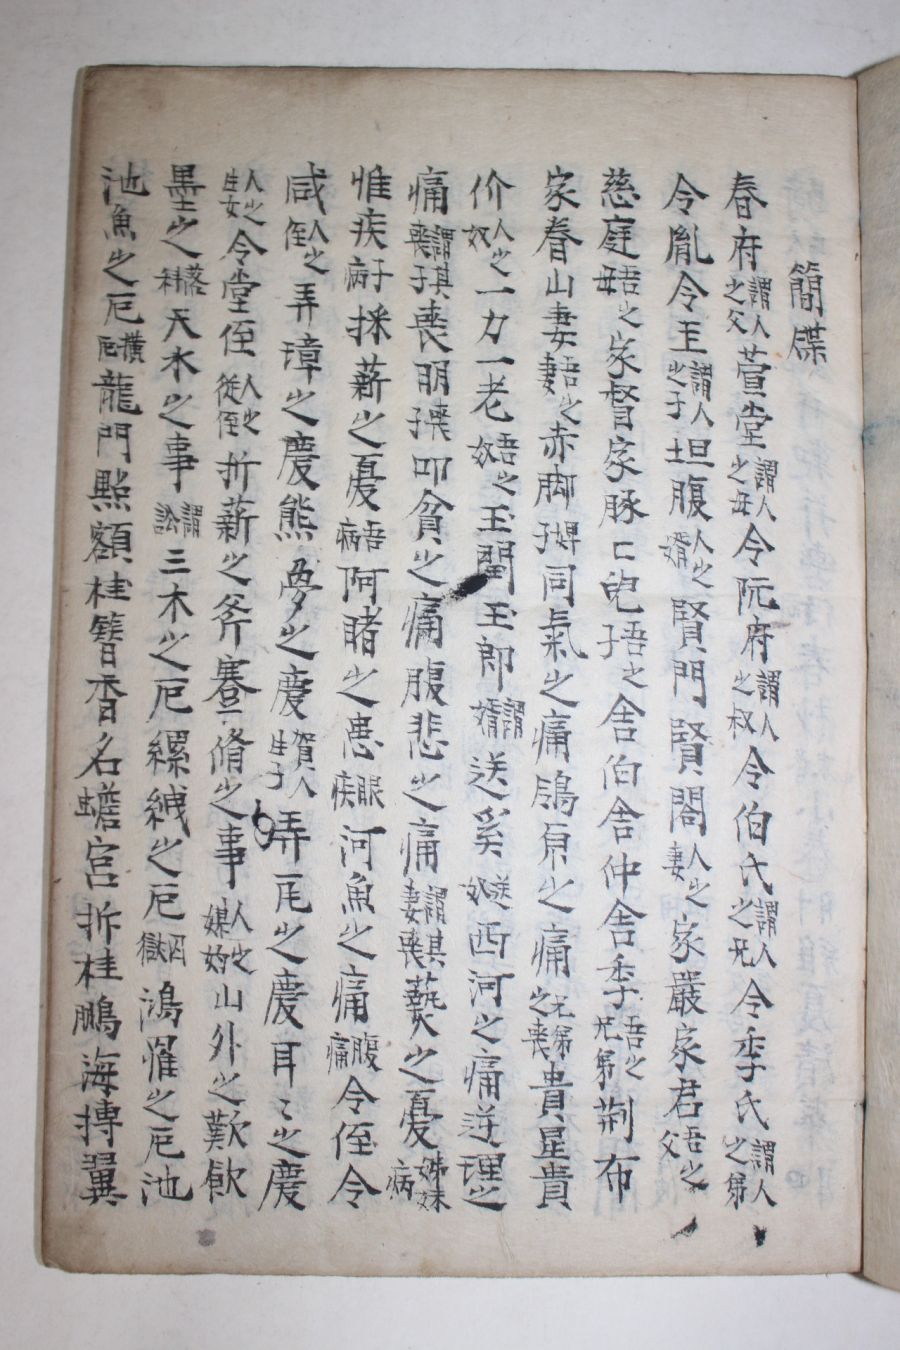 簡牒
春府謂人之父萱堂謂人之母令阮府謂人之叔令伯氏謂人之兄令季氏謂人之弟
令胤令王謂人之子坦腹人之婿賢門賢閤人之妻家嚴家君吾之父
慈庭吾之母家督家豚豚兒吾之子舍伯舍仲舍季吾之兄弟荆布
家眷山妻吾之妻赤脚婢子同氣之痛鴒原之痛兄弟之喪貴星貴
价人之奴一力一老吾之奴玉閏玉郎謂婿送奚送奴西河之痛逆理之
痛謂其喪子喪明喪子叩貧之痛腹悲之痛謂其妻喪藝之憂姊妹病
惟疾子病採薪之憂吾病阿睹之患眼疾河魚之痛腹痛令侄令
咸人之侄弄璋之慶熊夢之慶賀人生子弄瓦之慶耳之慶
人之生女令堂侄人之從侄折薪之斧蹇脩之事人之媒妁山外之歎飲
墨之落科天水之事謂訟三木之厄縲絏之厄囚獄鴻罹之厄池
池魚之厄橫厄龍門點額桂簪香名蟾宮折桂鵬海摶翼